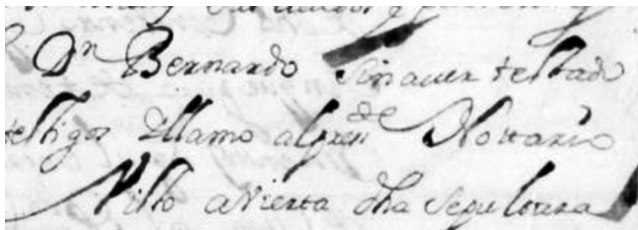 Dn Bernardo sin aver testado
testigos Illamo al presen de Nottario
Visto avierta dha Sepultura